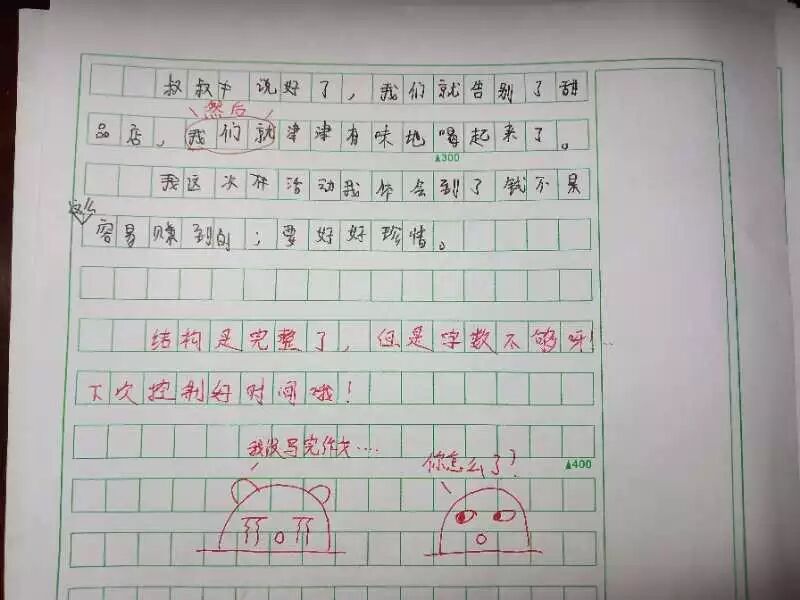 叔叔中说好了，我们就告别了甜
然后
品店，我们就津津有味地喝起来了。
▲300
我这次在活动我体会到了钱不是
这么
容易赚到的；要好好珍惜。
结构是完整了，但是字数不够呀！…
下次控制好时间哦！
我没写完作文……
你怎么了？
▲400